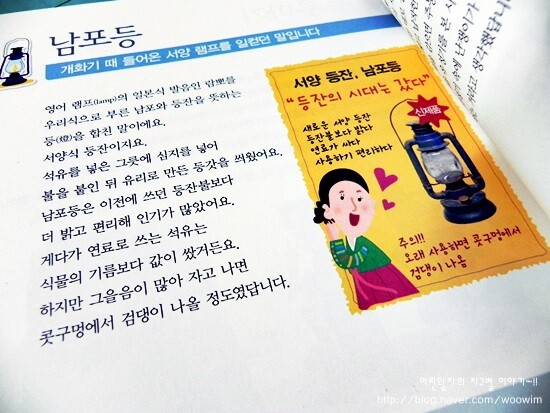 남포등
개화기 때 들어온 서양 램프를 일컫던 말입니다
영어 램프(lamp)의 일본식 발음인 람뽀를
우리식으로 부른 남포와 등잔을 뜻하는
등(燈)을 합친 말이에요.
서양식 등잔이지요.
석유를 넣은 그릇에 심지를 넣어
불을 붙인 뒤 유리로 만든 등갓을 씌웠어요.
남포등은 이전에 쓰던 등잔불보다
더 밝고 편리해 인기가 많았어요.
게다가 연료로 쓰는 석유는
식물의 기름보다 값이 쌌거든요.
하지만 그을음이 많아 자고 나면
콧구멍에서 검댕이 나올 정도였답니다.
서양 등잔, 남포등
"등잔의 시대는 갔다"
신제품
새로운 서양 등잔
등잔불보다 밝다
연료가 싸다
사용하기 편리하다
주의!!
오래 사용하면 콧구멍에서
검댕이 나옴
http://blog.naver.com/woowim